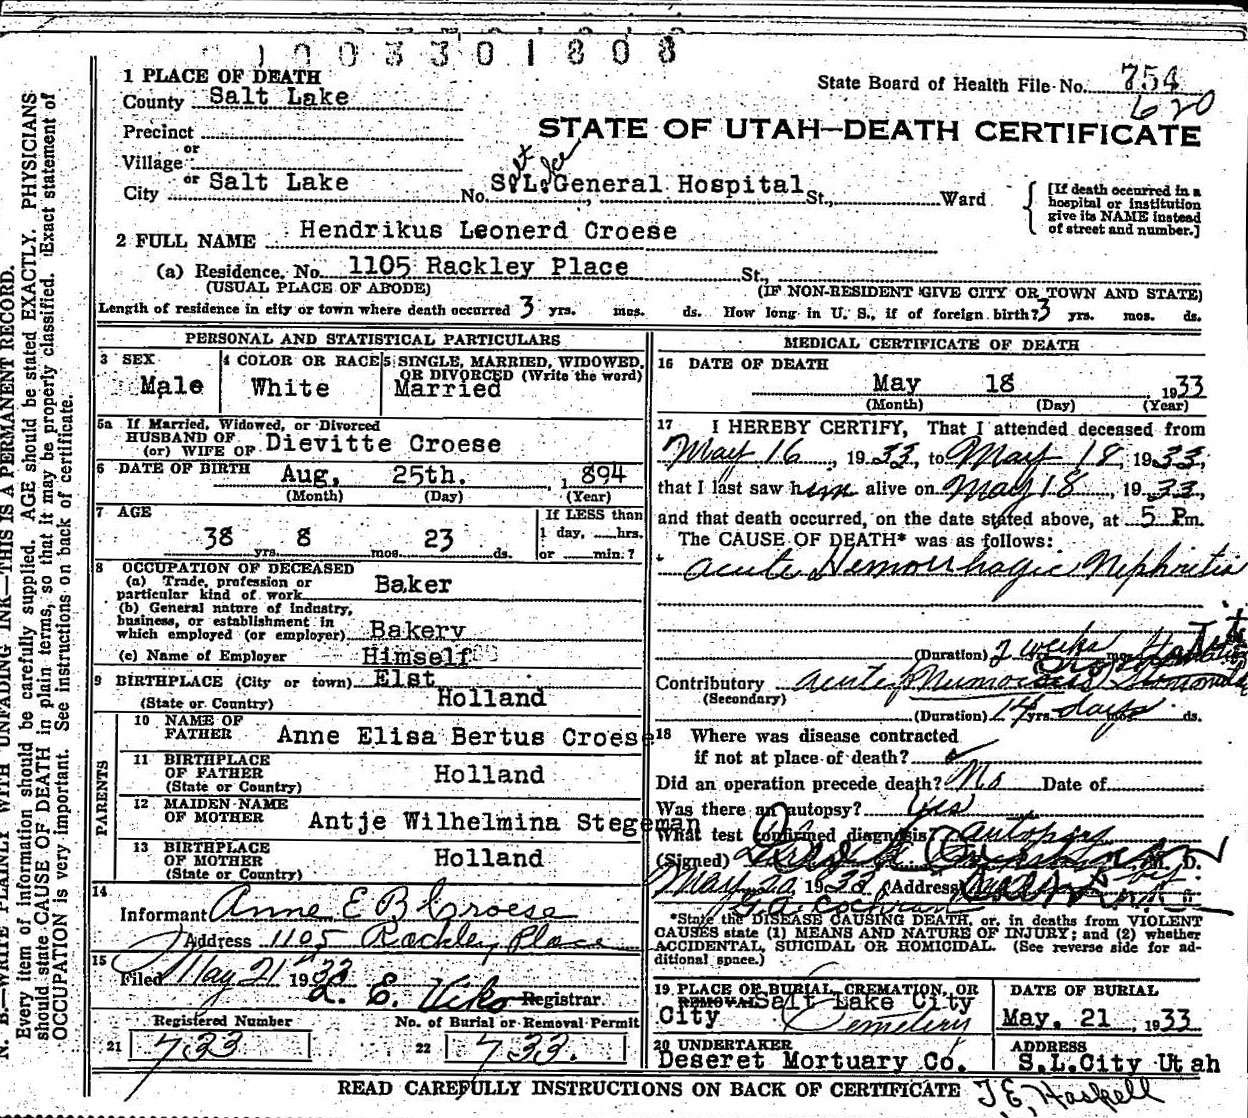 1003301808
1 PLACE OF DEATH
State Board of Health File No. 754
620
County Salt Lake
STATE OF UTAH—DEATH CERTIFICATE
Precinct
or
Village
or
City Salt Lake No. S.L. General Hospital St., Ward
[If death occurred in a hospital or institution give its NAME instead of street and number.]
2 FULL NAME Hendrikus Leonerd Croese
(a) Residence. No. 1105 Rackley Place St.,
(USUAL PLACE OF ABODE) (IF NON-RESIDENT GIVE CITY OR TOWN AND STATE)
Length of residence in city or town where death occurred 3 yrs. mos. ds. How long in U. S., if of foreign birth? 3 yrs. mos. ds.
PERSONAL AND STATISTICAL PARTICULARS
3 SEX
Male
4 COLOR OR RACE
White
5 SINGLE, MARRIED, WIDOWED,
OR DIVORCED (Write the word)
Married
5a If Married, Widowed, or Divorced
HUSBAND OF
(or) WIFE OF Dievitte Croese
6 DATE OF BIRTH Aug, 25th. , 1894
(Month) (Day) (Year)
7 AGE
38 yrs. 8 mos. 23 ds.
If LESS than
1 day, hrs.
or min.?
8 OCCUPATION OF DECEASED
(a) Trade, profession or
particular kind of work Baker
(b) General nature of industry,
business, or establishment in
which employed (or employer) Bakery
(c) Name of Employer Himself
9 BIRTHPLACE (City or town) Elst
(State or Country) Holland
PARENTS
10 NAME OF
FATHER Anne Elisa Bertus Croese
11 BIRTHPLACE
OF FATHER Holland
(State or Country)
12 MAIDEN NAME
OF MOTHER Antje Wilhelmina Stegeman
13 BIRTHPLACE
OF MOTHER Holland
(State or Country)
14
Informant Anne E B Croese
Address 1105 Rackley Place
15
Filed May 21 1933
L. E. Viko Registrar.
Registered Number No. of Burial or Removal Permit
21 733 22 733.
MEDICAL CERTIFICATE OF DEATH
16 DATE OF DEATH
May 18 1933
(Month) (Day) (Year)
17 I HEREBY CERTIFY, That I attended deceased from
May 16, 1933, to May 18, 1933,
that I last saw him alive on May 18, 1933,
and that death occurred, on the date stated above, at 5 Pm.
The CAUSE OF DEATH* was as follows:
acute Hemorrhagic Nephritis
(Duration) 2 yrs. weeks mos.
Contributory acute
(Secondary)
(Duration) 14 yrs. days mos. ds.
18 Where was disease contracted
if not at place of death?
Did an operation precede death? No Date of
Was there an autopsy? Yes
What test confirmed diagnosis? autopsy
(Signed) M. D.
May 20 1933 (Address)
G.A. Cochran
*State the DISEASE CAUSING DEATH, or, in deaths from VIOLENT
CAUSES state (1) MEANS AND NATURE OF INJURY; and (2) whether
ACCIDENTAL, SUICIDAL OR HOMICIDAL. (See reverse side for additional space.)
19 PLACE OF BURIAL, CREMATION, OR
REMOVAL Salt Lake City
City Cemetery
DATE OF BURIAL
May. 21, 1933
20 UNDERTAKER
Deseret Mortuary Co.
ADDRESS
S.L.City Utah
READ CAREFULLY INSTRUCTIONS ON BACK OF CERTIFICATE T.E. Haskell
N. B.—WRITE PLAINLY WITH UNFADING INK—THIS IS A PERMANENT RECORD.
Every item of information should be carefully supplied. AGE should be stated EXACTLY. PHYSICIANS
should state CAUSE OF DEATH in plain terms, so that it may be properly classified. Exact statement of
OCCUPATION is very important. See instructions on back of certificate.